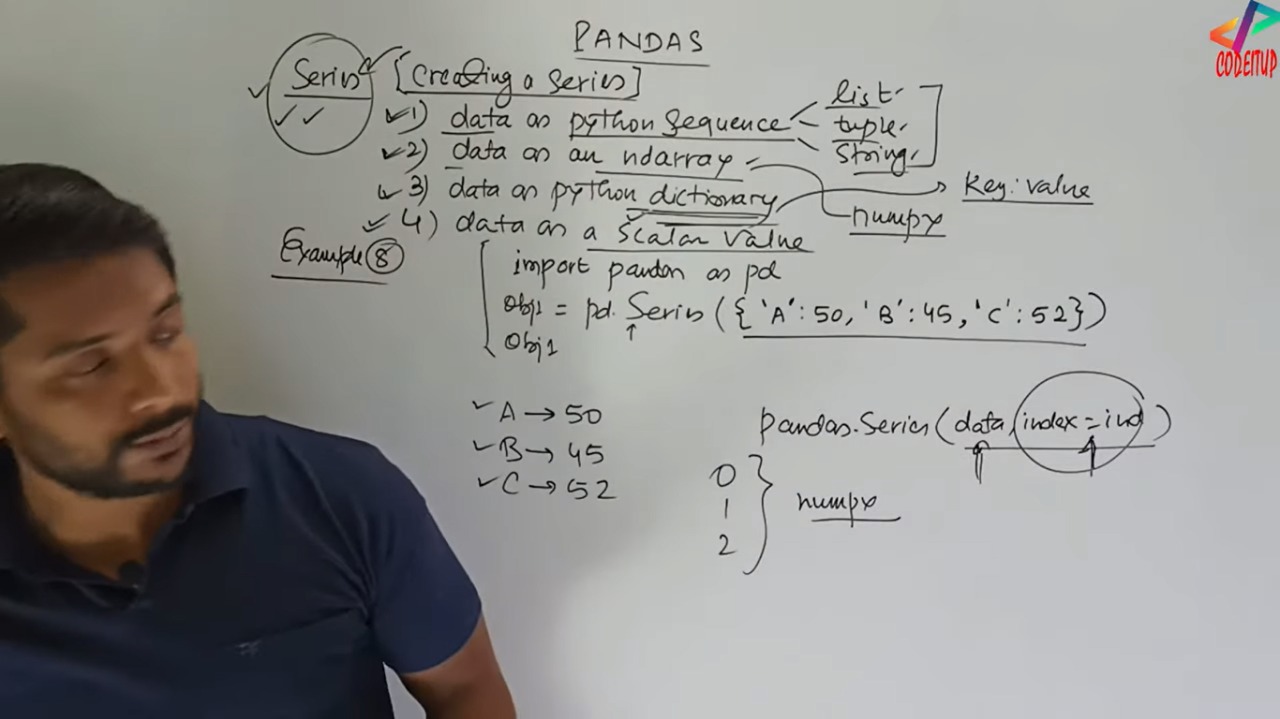 PANDAS
CODEITUP
Series [Creating a Series]
1) data as python sequence
list
tuple
String
2) data as an ndarray
numpy
3) data as python dictionary
Key: value
4) data as a Scalar value
Example 8
import pandas as pd
Obj1 = pd. Series ({'A': 50, 'B': 45, 'C': 52})
Obj1
A → 50
B → 45
C → 52
pandas.Series(data, index = ind)
0
1
2
numpy